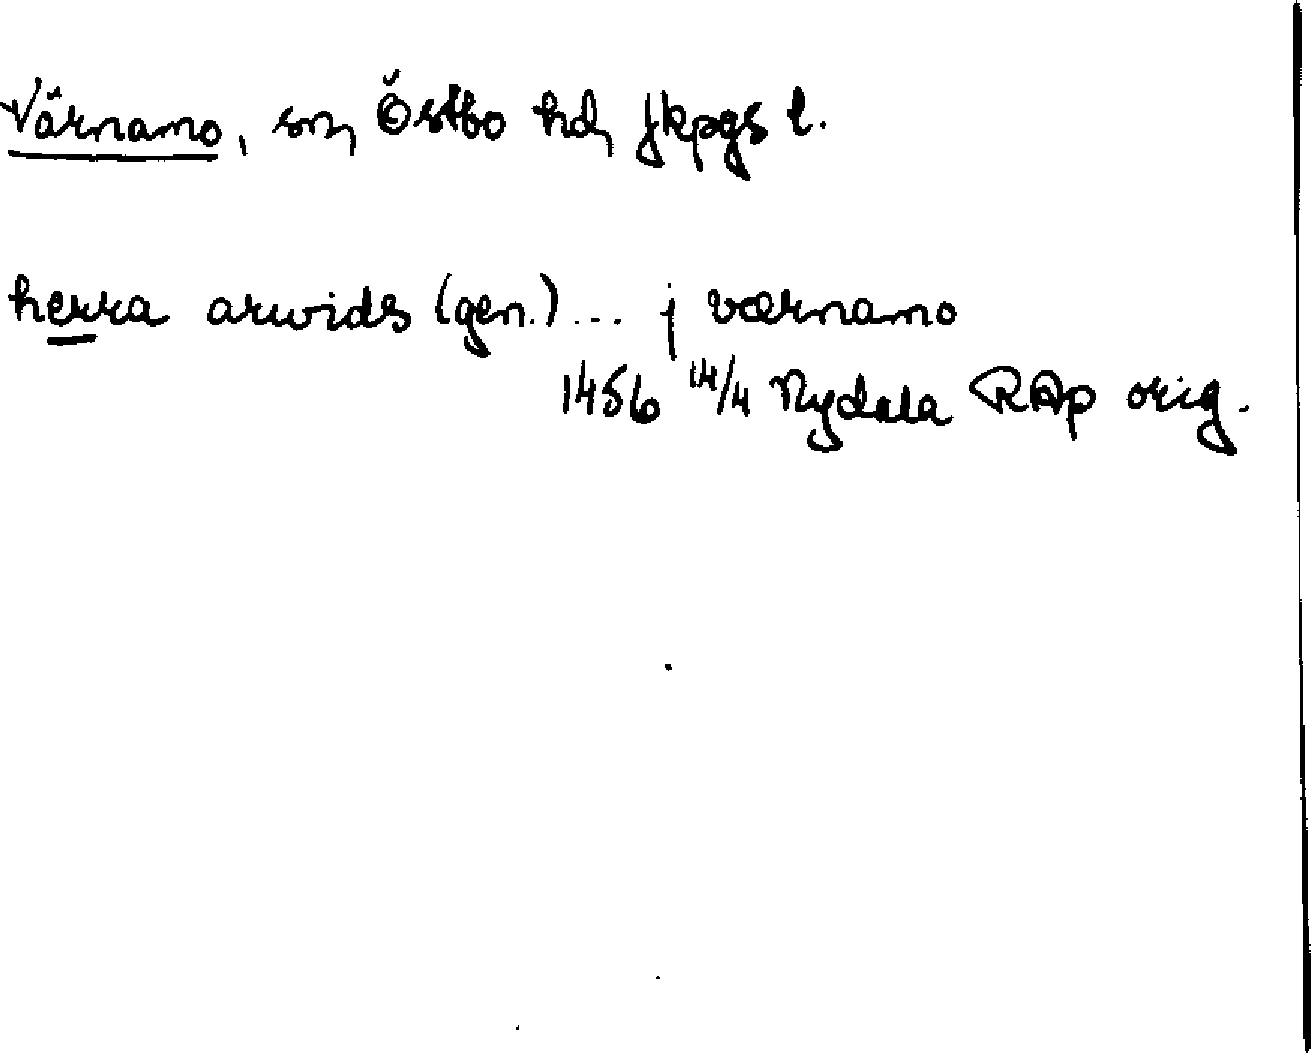 Värnamo, sn, Östbo hd, Jkpgs l.
herra arwids (gen.) ... jværnamo
1456 14/4 Nydala RAp orig.